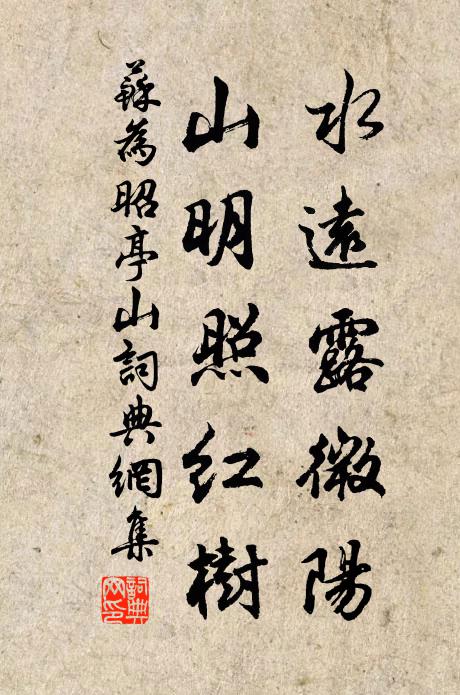 水遠露微陽
山明照紅樹
蘇為昭亭山詞典網集
詞典網印